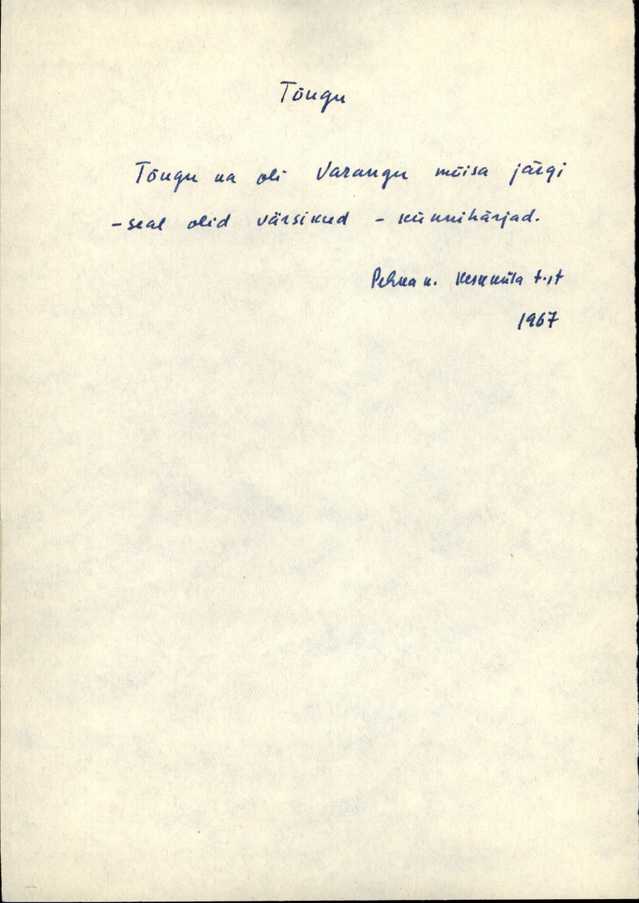 Tõugu
Tõugu ka oli Varangu mõisa järgi
- seal olid värsikud - künnihärjad.
Pehka k. Keskküla t.-st
1967